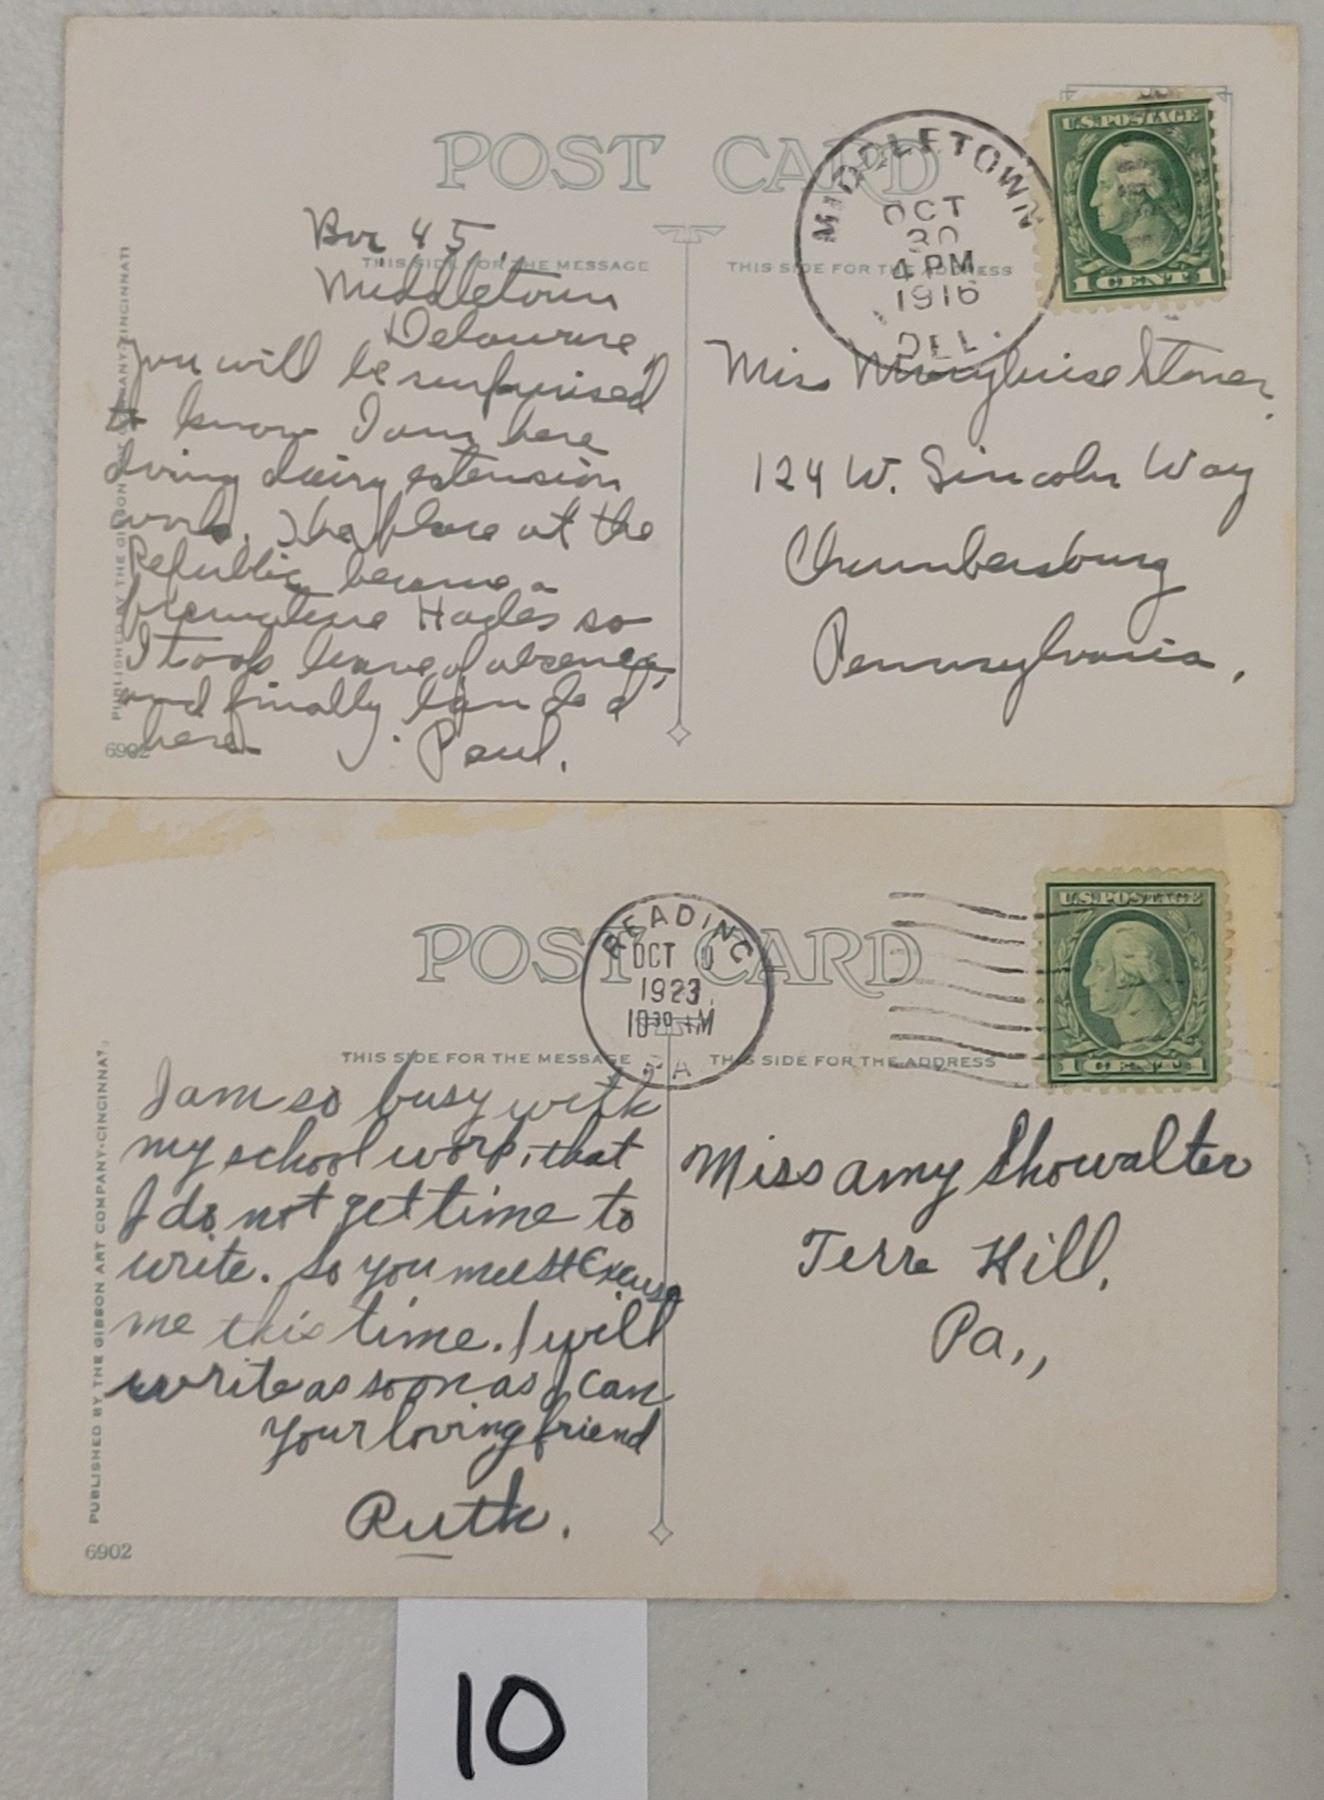 POST CARD
MIDDLETOWN
OCT
30
4 PM
1916
DEL.
U.S. POSTAGE
1 CENT 1
THIS SIDE FOR THE MESSAGE
THIS SIDE FOR THE ADDRESS
Box 45,
Middletown
Delaware,
You will be surprised
to know I am here
doing dairy extension
work. The place at the
Republic became a
premature Hades so
I took leave of absence,
and finally landed
here. Paul.
Miss Marylouise Stoner,
124 W. Lincoln Way
Chambersburg
Pennsylvania.
PUBLISHED BY THE GIBSON ART COMPANY-CINCINNATI
6902
POST CARD
READING
OCT
1923
10 30 M
PA
U.S. POSTAGE
1 CENT 1
THIS SIDE FOR THE MESSAGE
THIS SIDE FOR THE ADDRESS
I am so busy with
my school work, that
I do not get time to
write. So you must Excuse
me this time. I will
write as soon as I can
Your loving friend
Ruth.
Miss Amy Showalter
Terre Hill,
Pa.,,
PUBLISHED BY THE GIBSON ART COMPANY-CINCINNATI
6902
10